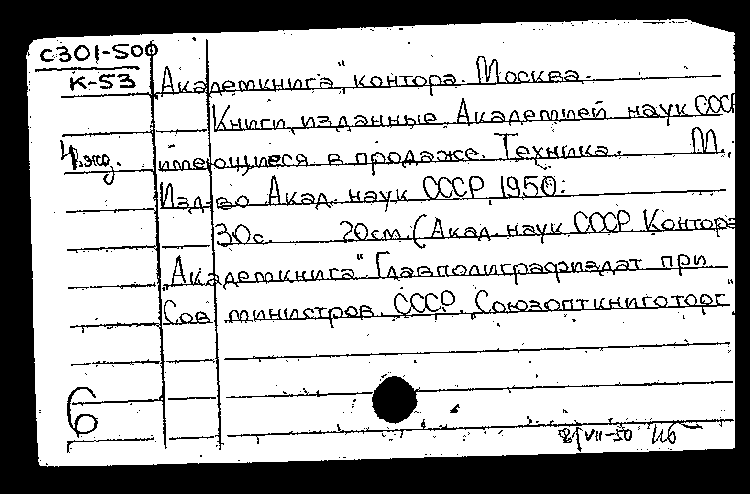 С301-500
К-53
„Академкнига", контора. Москва.
Книги, изданные Академией наук СССР
4 экз. имеющиеся в продаже. Техника. М.,
Изд-во Акад. наук СССР, 1950.
30с. 20см. (Акад. наук СССР. Контора
„Академкнига". Главполиграфиздат при
Сов. министров СССР. "Союзопткниготорг"
6
VII-50